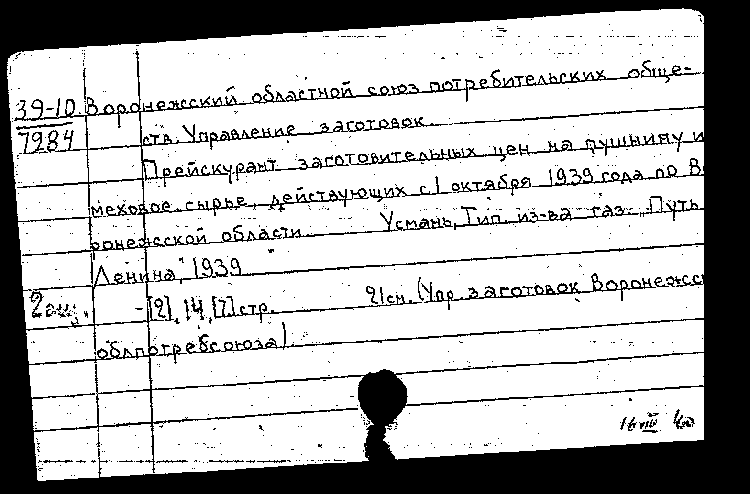 39-10. Воронежский областной союз потребительских обще-
7984 ств. Управление заготовок.
Прейскурант заготовительных цен на пушнину и
меховое сырье, действующих с 1 октября 1939 года по В
оронежской области. Усмань, Тип. из-ва газ. „Путь
Ленина", 1939
2 экз. - [2], 14, [7] стр. 21 см. (Упр. заготовок Воронежск
облпотребсоюза).
16 VIII 40